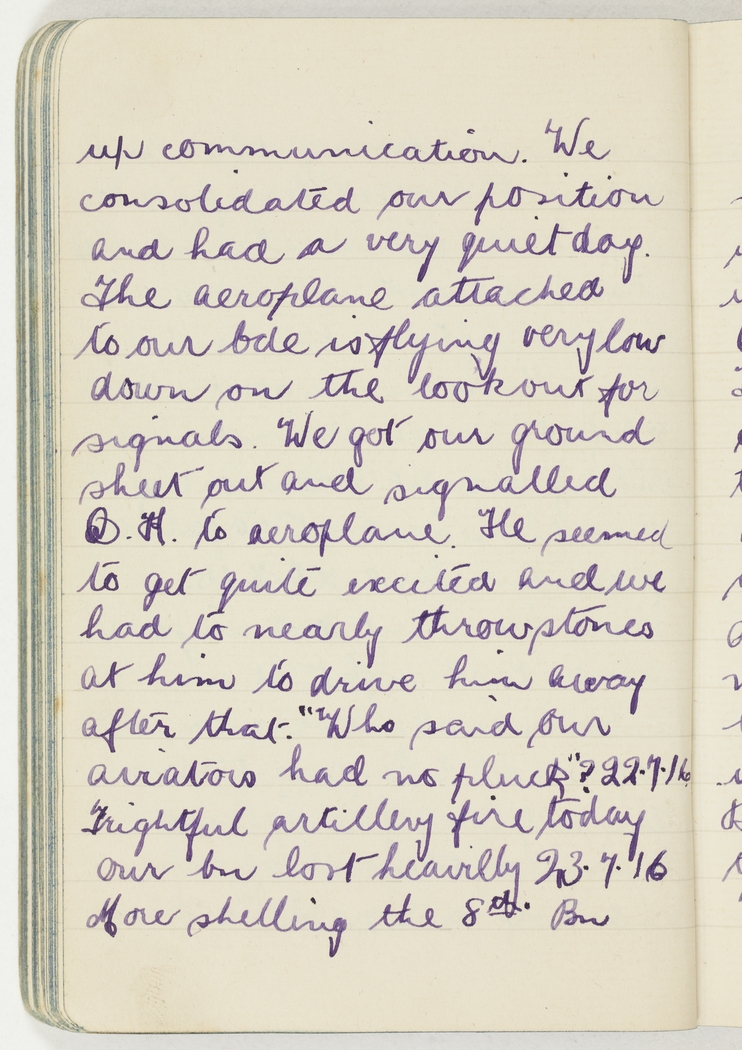 up communication. We
consolidated our position
and had a very quiet day.
The aeroplane attached
to our bde is flying very low
down on the lookout for
signals. We got our ground
sheet out and signalled
O.H. to aeroplane. He seemed
to get quite excited and we
had to nearly throw stones
at him to drive him away
after that. "Who said our
aviators had no pluck"? 22.7.16
Frightful artillery fire today
our bn lost heavilly 23.7.16
More shelling the 8th. Bn